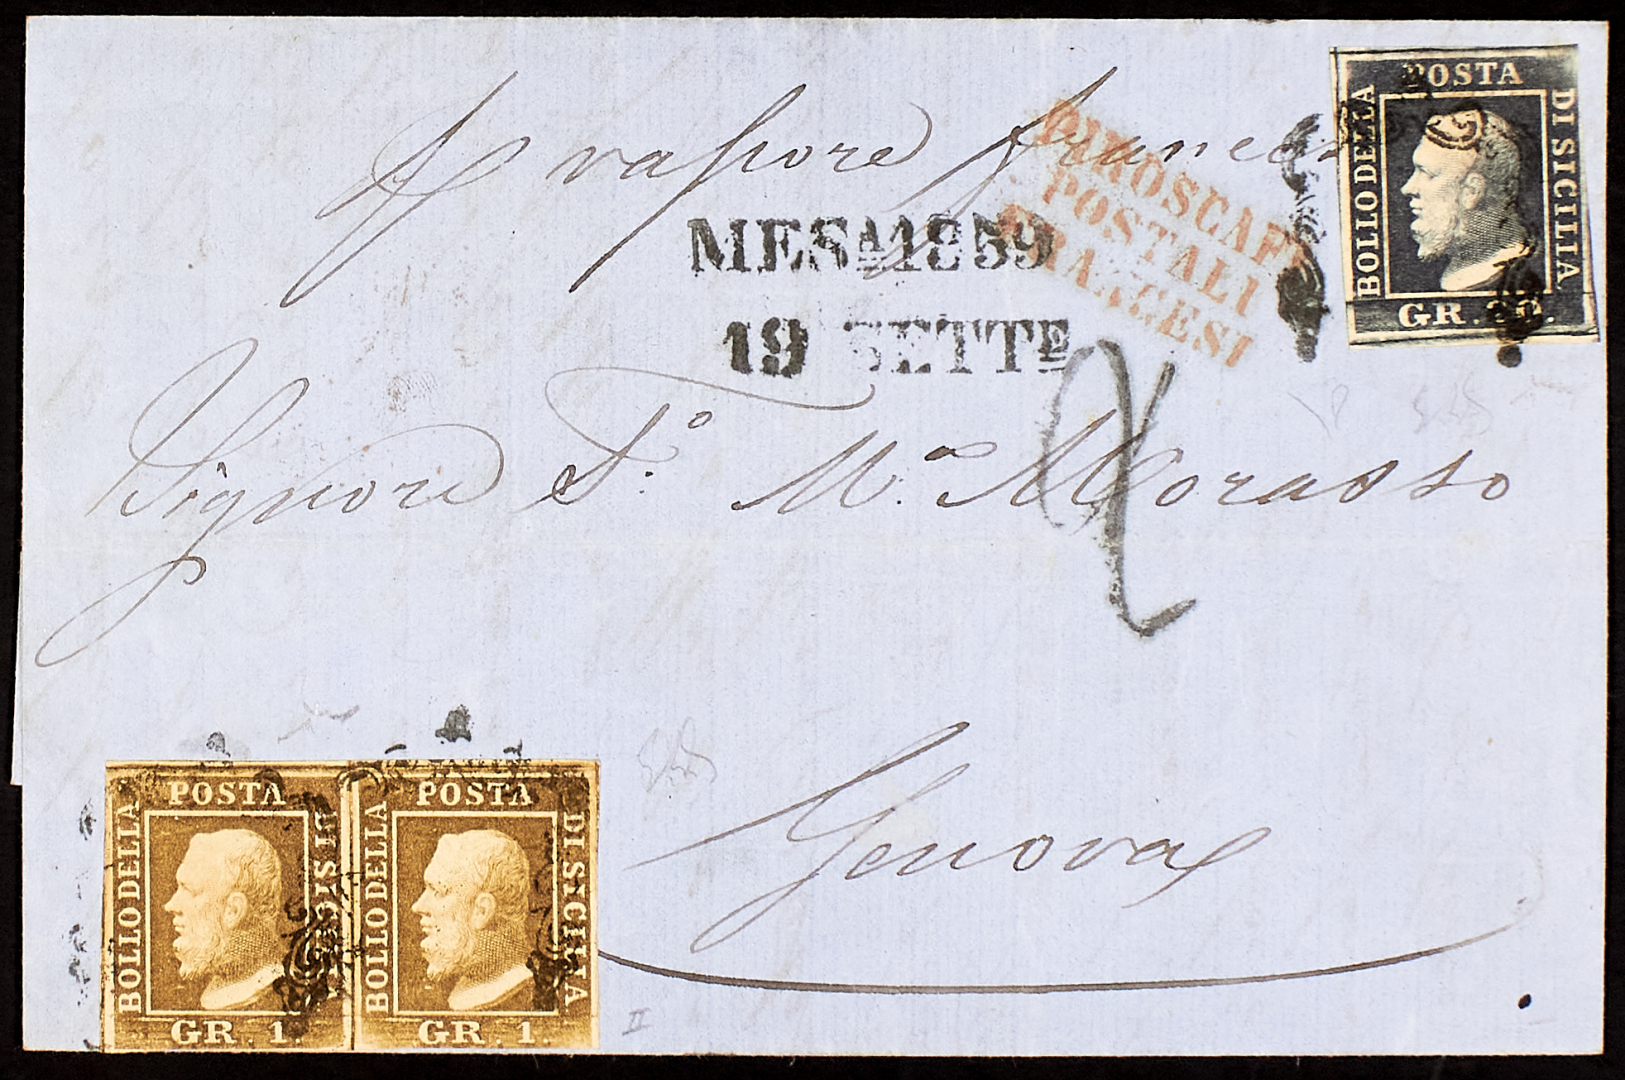 POSTA
BOLLO DELLA
DI SICILIA
GR. 20.
vapore francese
PIROSCAFI
POSTALI
FRANCESI
MESA 1859
19 SETTE
2
Signore F.º M.ª Morasso
Genova
POSTA
BOLLO DELLA
DI SICILIA
GR. 1.
POSTA
BOLLO DELLA
DI SICILIA
GR. 1.
II